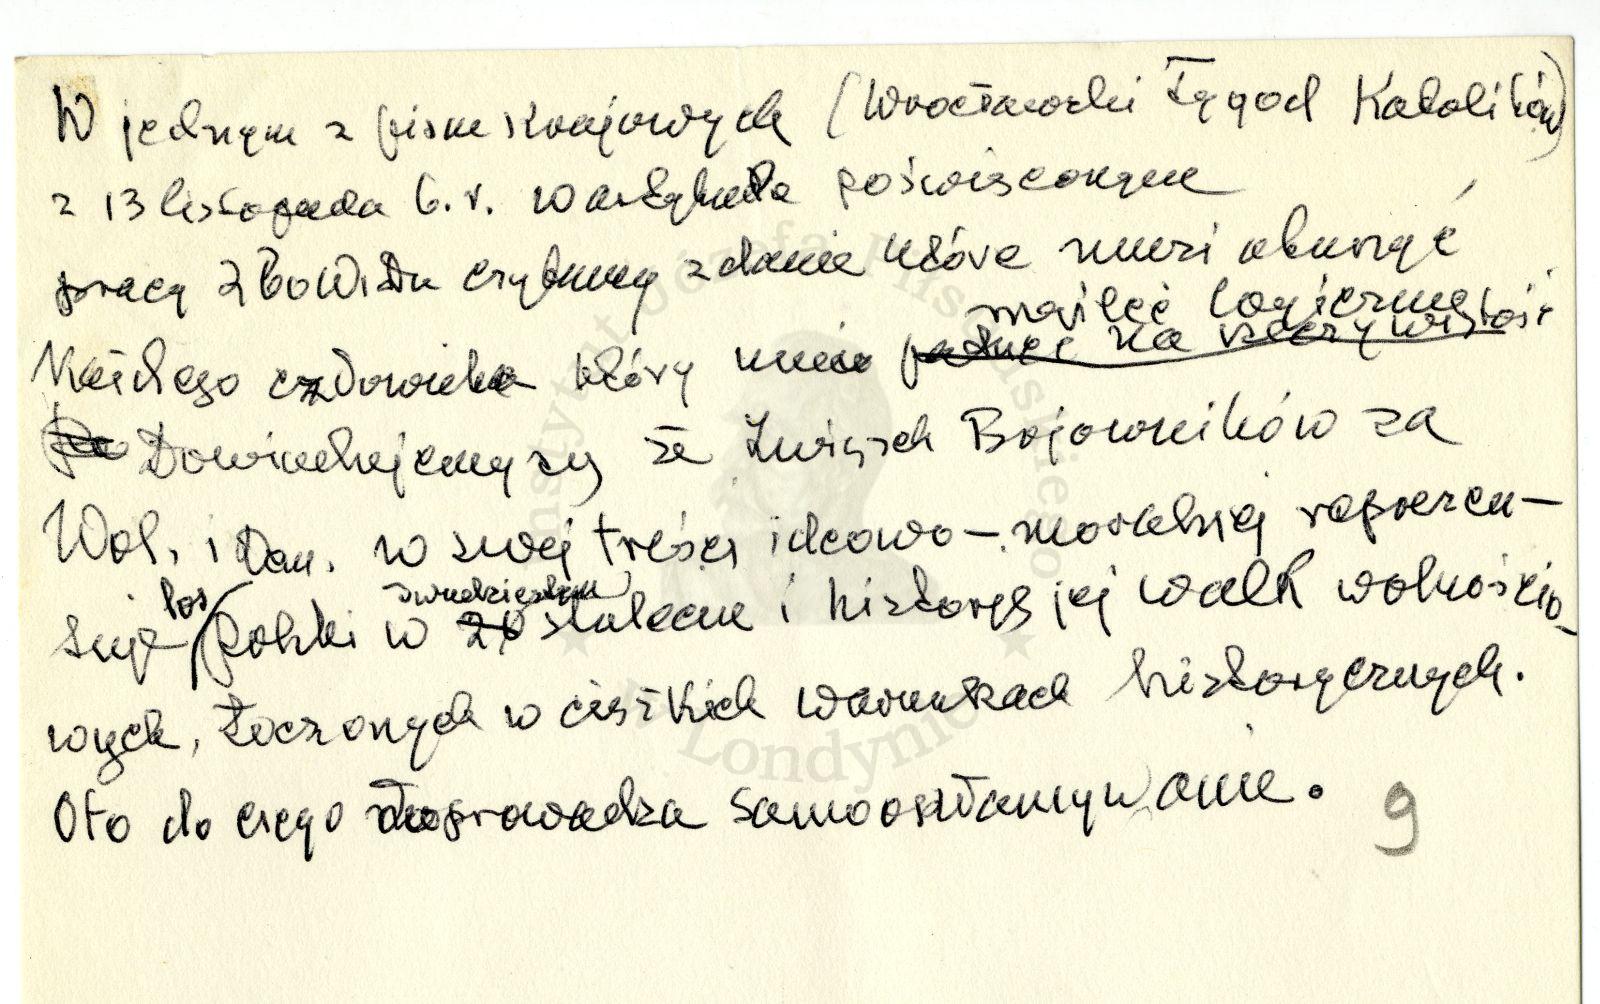 W jednym z pism krajowych (Wrocławski Tygod Katolików)
z 13 listopada b.r. w artykule poświęconym
pracy ZBoWiDu czytamy zdanie które musi oburzyć
myśleć logicznie
każdego człowieka który umie patrzeć na rzeczywistość
Dowiadujemy się że Związek Bojowników za
Wol. i Dem. w swej treści ideowo-moralnej reprezen-
los dwudziestym
tuje Polski w 20 stuleciu i historyę jej walk wolnościo-
wych, toczonych w ciężkich warunkach historycznych.
Oto do czego doprowadza samookłamywanie.
9
Instytut Józefa Piłsudskiego
w Londynie